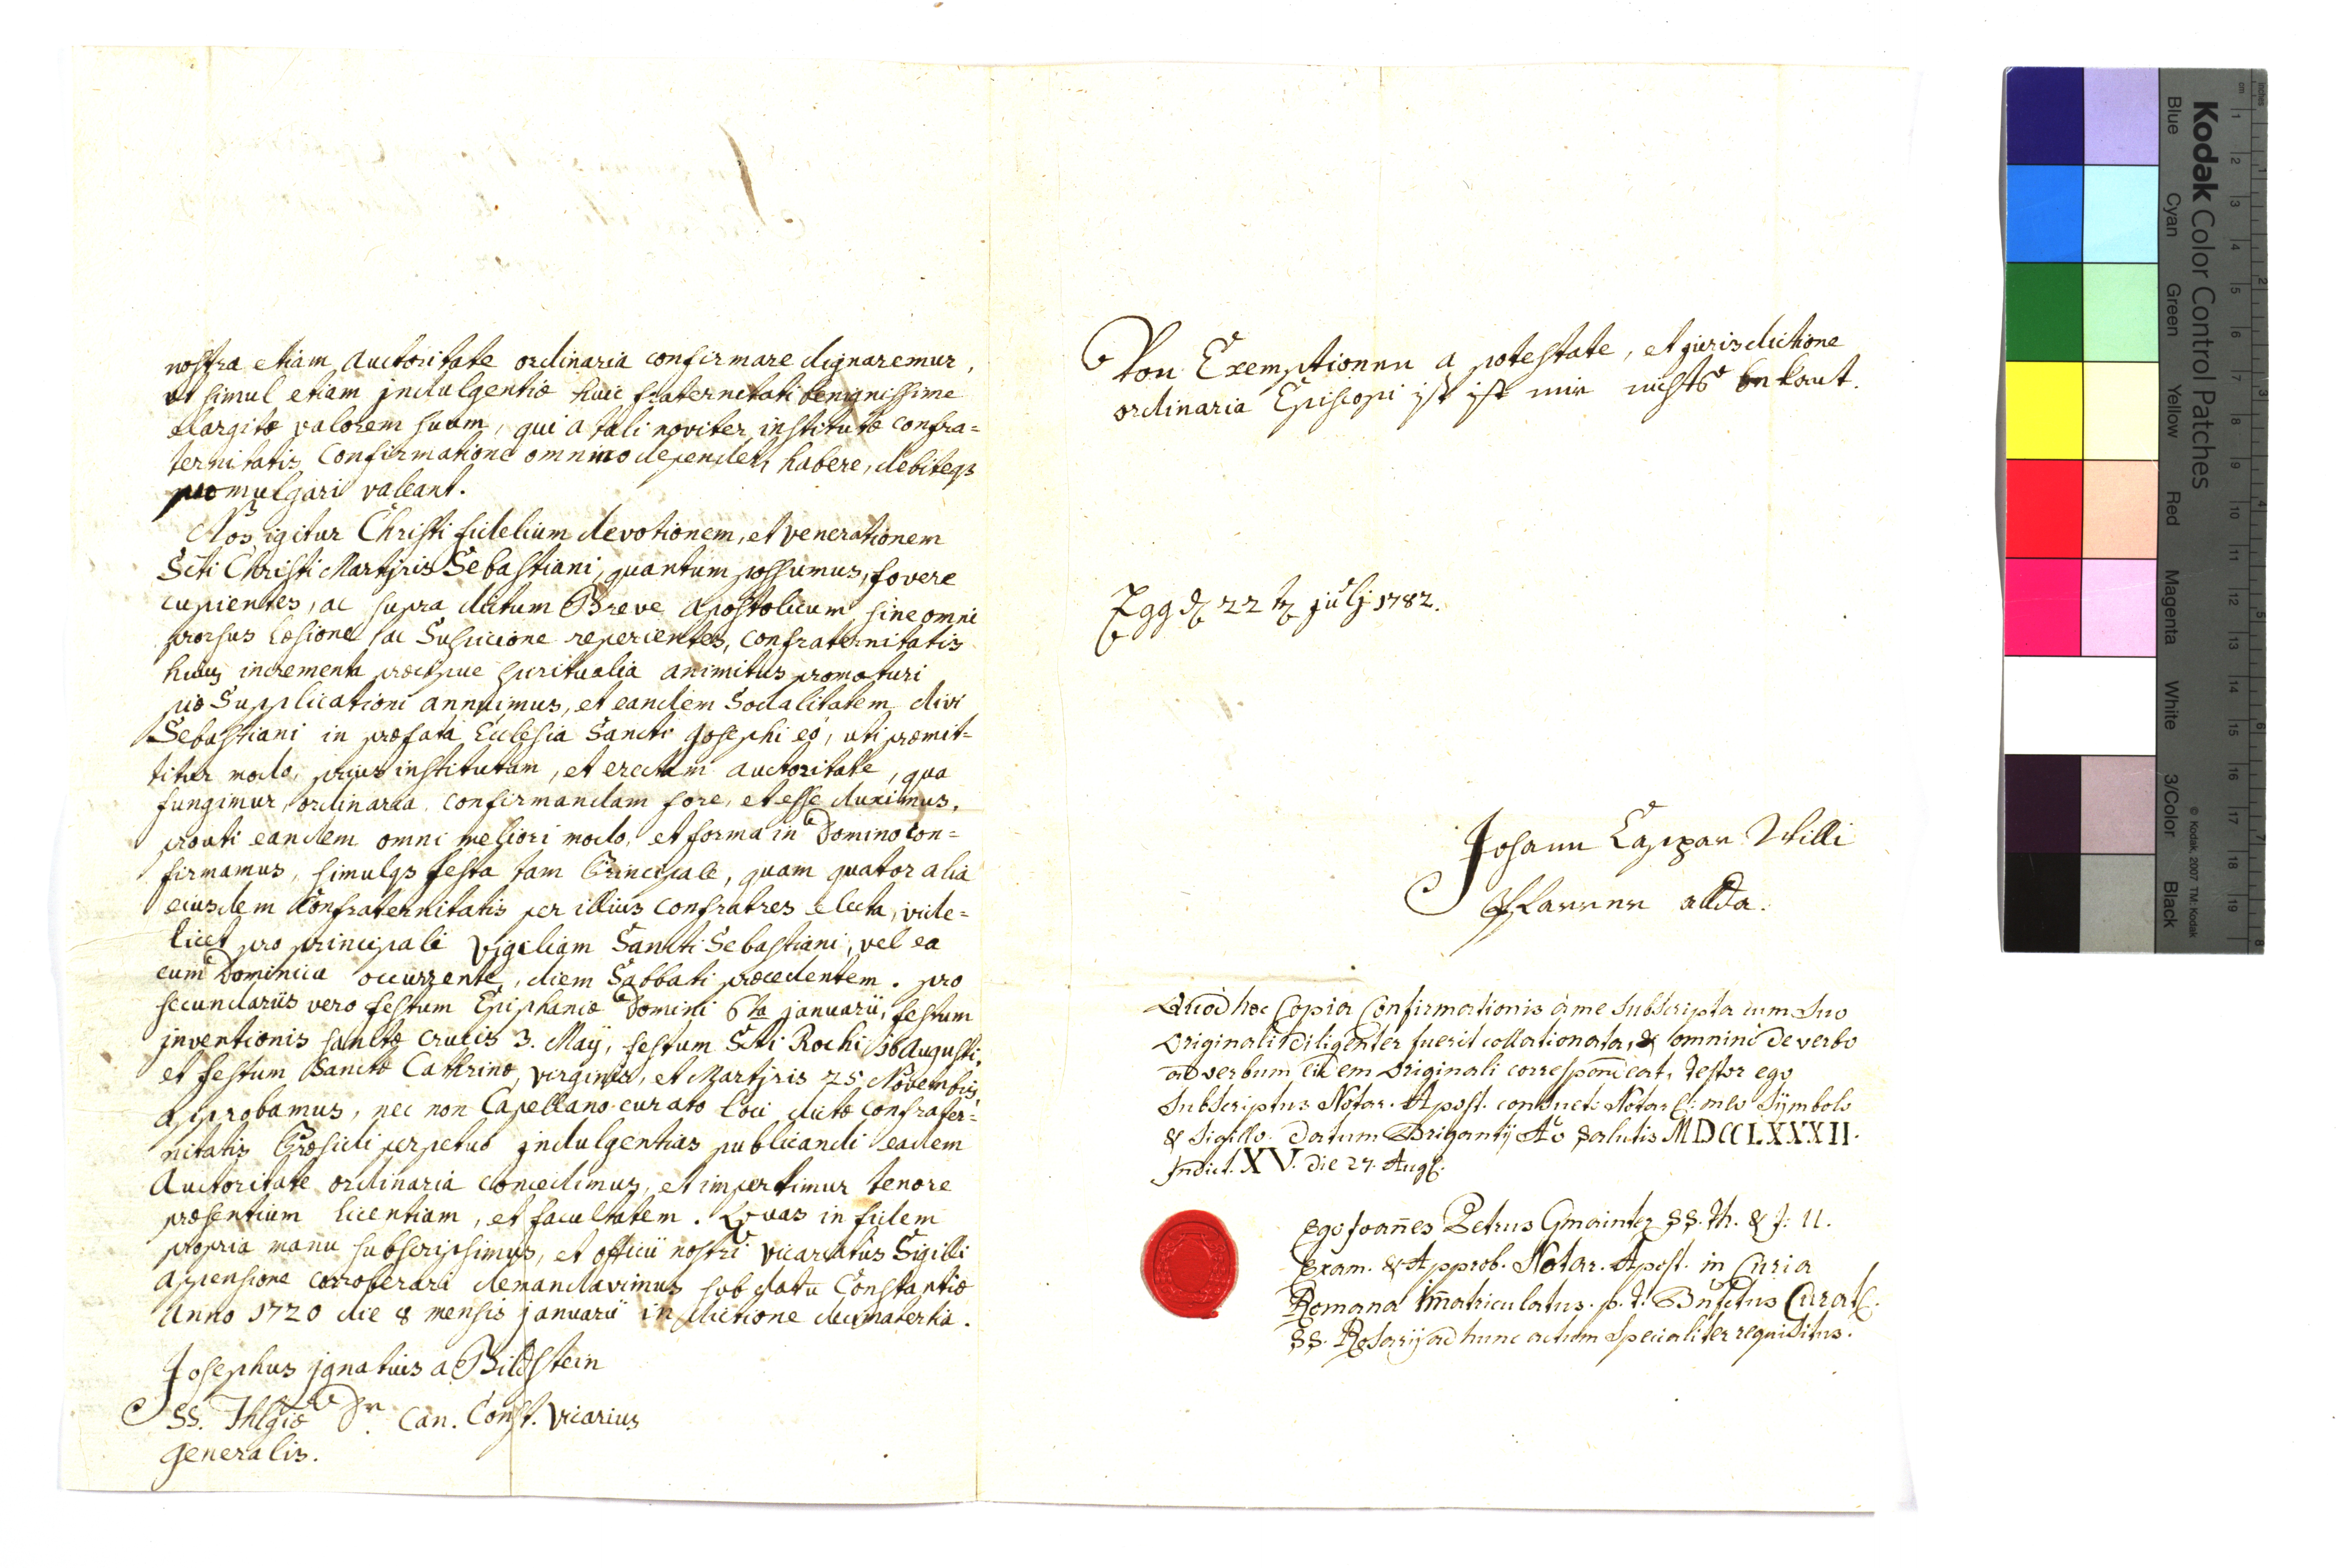 nostra etiam auctoritate ordinaria confirmare dignaremur,
et simul etiam jndulgentiæ huic fraternitati benignissime
elargitæ valorem suum, qui a tali noviter institutæ confra=
ternitatis confirmatione omnino dependet, habere, debiteqs
promulgari valeant.
Nos igitur Christi fidelium devotionem, et venerationem
Scti Christi Martyris Sebastiani, quantum possumus, fovere
cupientes, ac supra dictum Breve Apostolicum sine omni
prorsus læsione ac Suspicione reperientes, confraternitatis
huius incrementa præcipue spiritualia animitus promoturi
piæ Supplicationi annuimus, et eandem Sodalitatem divi
Sebastiani in præfata Ecclesia Sancti Josephi eó, uti præmit=
titur modo, prius institutam, et erectam auctoritate, qua
fungimur, ordinaria confirmandam fore, et esse duximus,
prouti eandem omni meliori modo, et forma in Domino con=
firmamus, simulqs festa tam Principale, quam quator alia
eiusdem Confraternitatis per illius confratres electa, vide=
licet pro principali Vigiliam Sancti Sebastiani, vel ea
cum Dominica occurrente, diem Sabbati præcedentem. pro
secundariis vero festum Epiphaniæ Domini 6ta januarii, festum
jnventionis sanctæ crucis 3. Maÿ, festum Scti Rochi 16 Augusti,
et festum Sanctæ Cathrinæ, virginis, et Martyris 25 Novembris,
approbamus, nec non Capellano curato loci dictæ confrater=
nitatis Præsidi perpetuo jndulgentias publicandi eadem
Auctoritate ordinaria concedimus, et impertimur tenore
præsentium licentiam, et facultatem. Quas in fidem
propria manu subscripsimus, et officii nostri vicariatus Sigilli
appensione corroberari demandavimus sub datu Constantiæ
Anno 1720 die 8 mensis januarii indictione decimatertia.
Josephus jgnatius a Bildstein
SS. Thlgiæ Dr. Can. Const. Vicarius
generalis.
Von Exemptionen a potestate, et jurisdictione
ordinaria Episcopi ist ist mir nichts bekant.
Egg d 22 t julj 1782.
Johann Caspar Willi
Pfarrer allda.
Quod hæc Copia Confirmationis á me subscripta cum suo
Originali diligenter fuerit collationata, & omnino de verbo
ad verbum eidem Originali correspondeat, Testor ego
Subscriptus Notar. Apost. consueto Notar: meo Sÿmbolo
& Sigillo. Datum Brigantÿ Aō Salutis MDCCLXXXII.
Jndict. XV. die 27. Aug.
Ego Joan̄es Petrus Gmainter SS. Th. & J: U.
Exam. & Approb. Notar. Apost. in Curia
Romana Im̄atriculatus. p. t. Bnfctus Curat.
SS. Rosarÿ ad hunc actum Specialiter requisitus.
Kodak Color Control Patches
Blue
Cyan
Green
Yellow
Red
Magenta
White
3/Color
Black
© Kodak, 2007 TM: Kodak
cm 1 2 3 4 5 6 7 8 9 10 11 12 13 14 15 16 17 18 19
inches 1 2 3 4 5 6 7 8